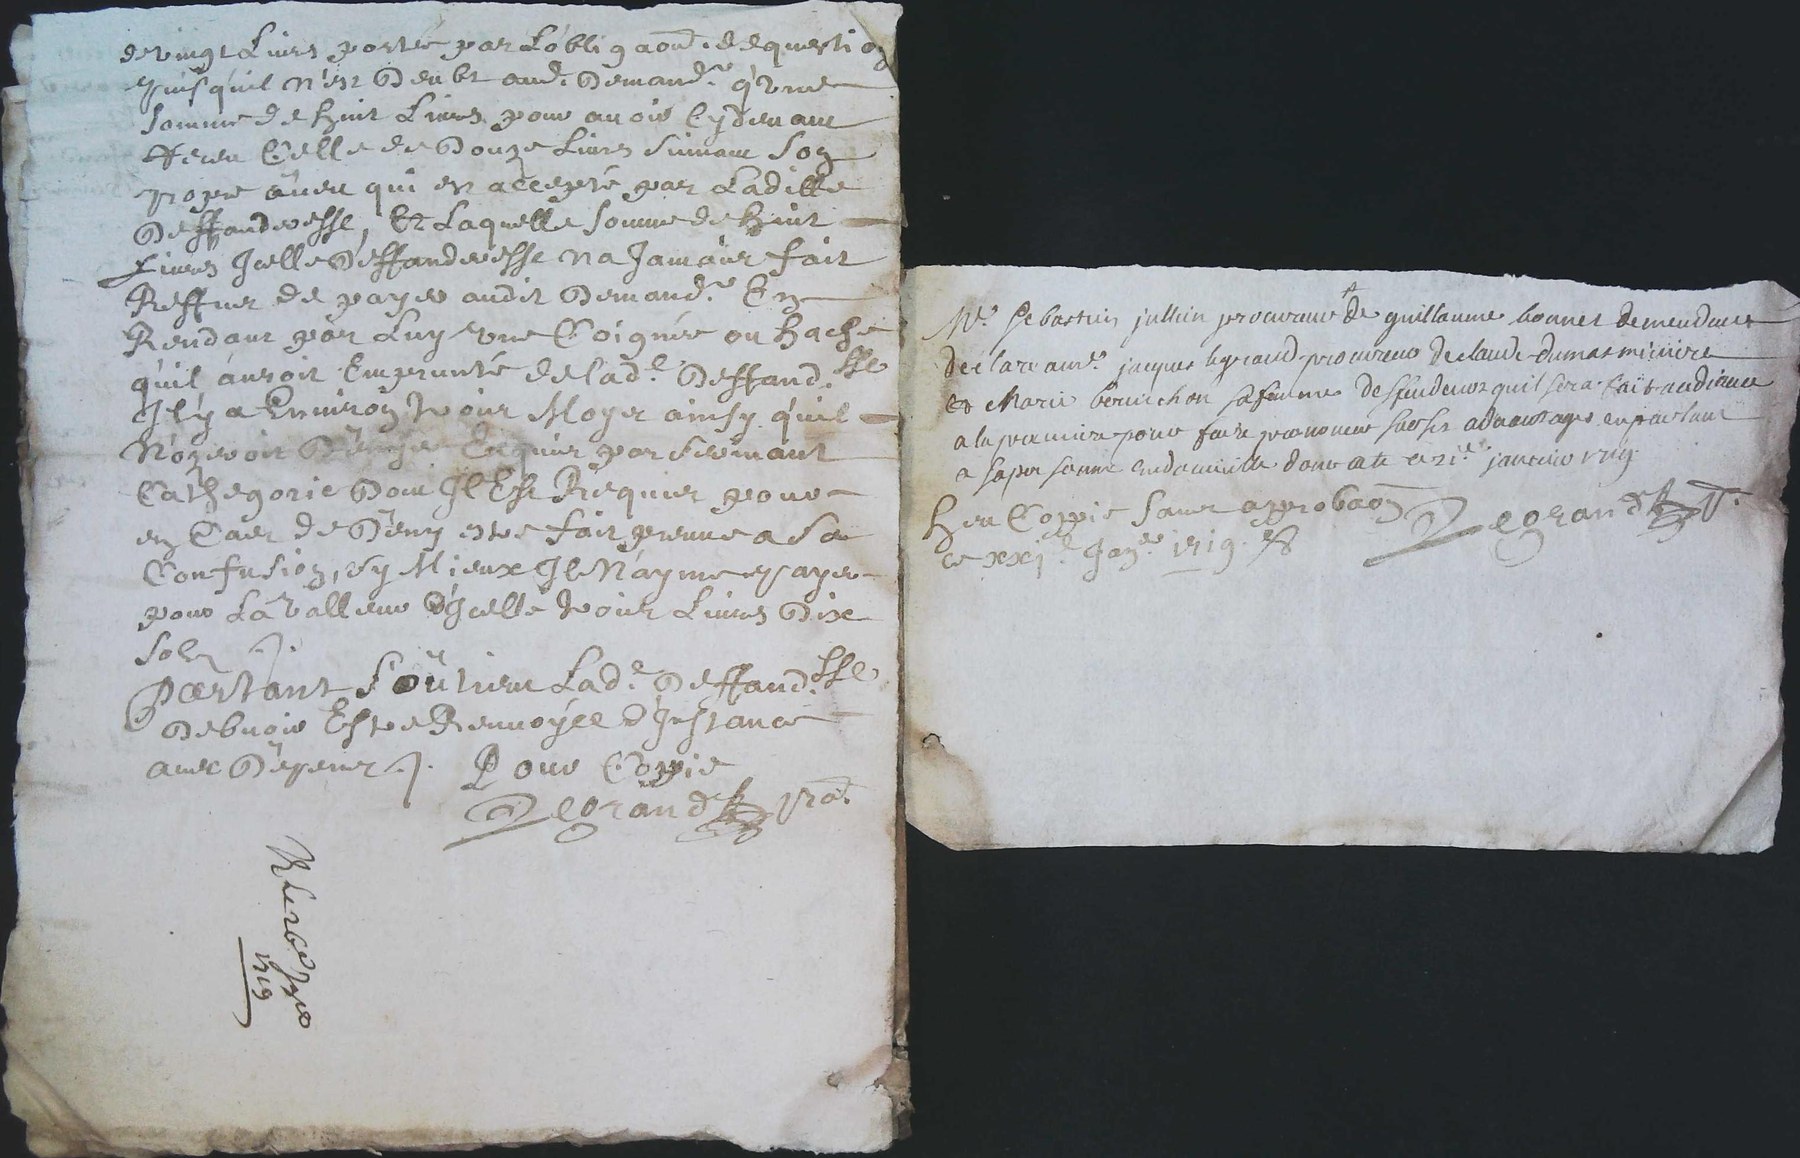 de vingt Livres portée par L'obligaon. de question
puis qu'il n'est Deubt aud. Demandr. q'Une
somme de huit Livres pour avoir Cy devant
Receu Celle de Douze Livres suivant son
propre aveu qui en accepté par Laditte
Deffanderesse, Et Laquelle somme de huit
Livres Jcelle Deffanderesse na Jamais fait
Reffus de payer audit Demandr. En
Rendant par Luy Une Coignée ou hache
qu'il auroit Emprunté de Lade. Deffand.sse
Il y a Environ trois Moys ainsy qu'il
N'ozeroit Denyer Enquis par serment
Cathegorie Dont Il Est Requis pour
en Cas de Deny Estre fait preuve a Sa
Confusion, sy Mieux Il N'ayme payer
pour La Valleur d'Jcelle trois Livres Dix
Solz
Partant Soûtient Lade. Deffand.sse
Debvoir Estre Renvoyée d'Jnstance
avec Depens. Pour Coppie
Legrand Pro.
1719
Me. Sebastien jullien procureur de guillaume bonnet demandeur
déclare a me. jacques legrand procureur de claude dumas
et Marie bonnichon sa femme deffendeurs quil sera fait audiance
a la premiere pour faire prononcer sur ses advantages en parlant
a sa personne en domicille dont acte ce 21e. janvier 1719
Heu Coppie sans approbaon Legrand P.
ce xxj.e Janer. 1719.